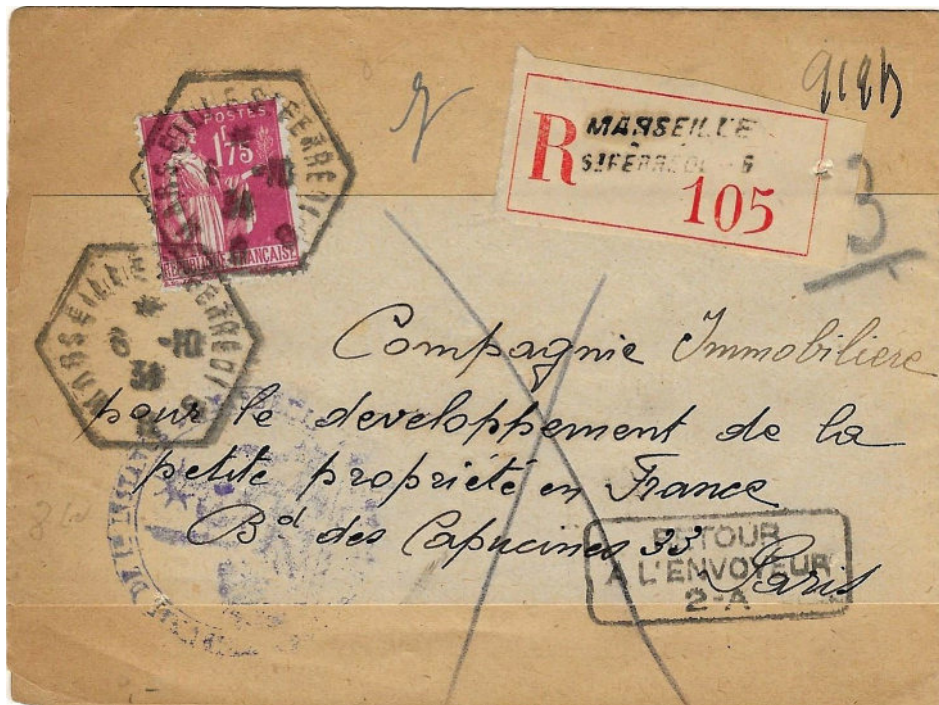 POSTES
1F75
RÉPUBLIQUE FRANÇAISE
MARSEILLE ST FERREOL
6 -10
36
MARSEILLE ST FERREOL
6 -10
36
R MARSEILLE
ST FERREOL
105
3
Compagnie Immobiliere
pour le developpement de la
petite propriété en France
Bd des Capucines 33
Paris
RETOUR
A L'ENVOYEUR
2-A